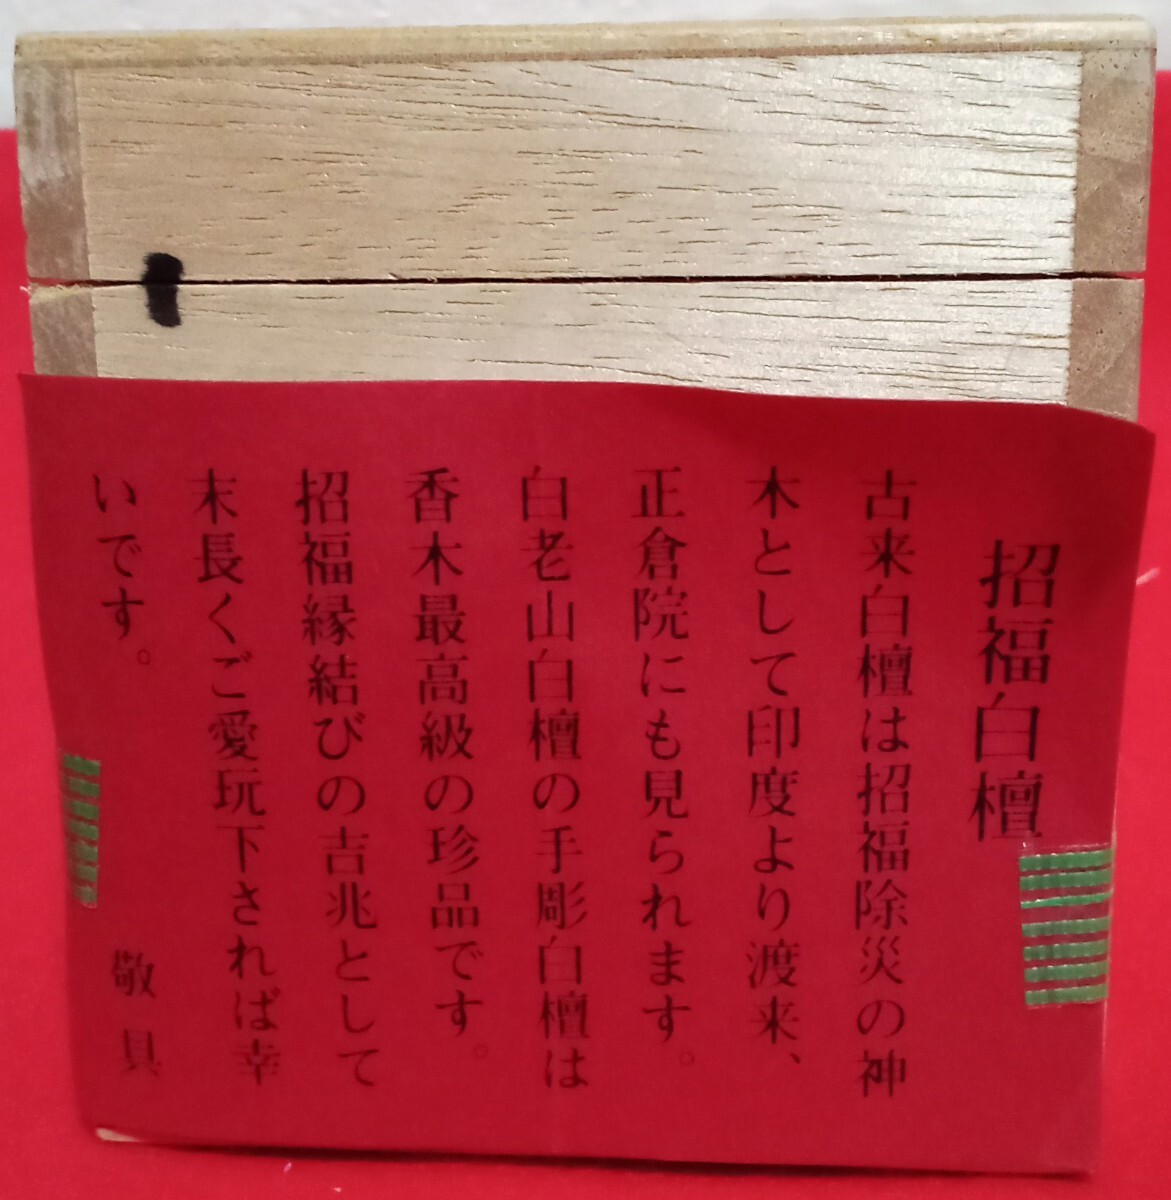 招福白檀
古来白檀は招福除災の神
木として印度より渡来、
正倉院にも見られます。
白老山白檀の手彫白檀は
香木最高級の珍品です。
招福縁結びの吉兆として
末長くご愛玩下されば幸
いです。
敬具